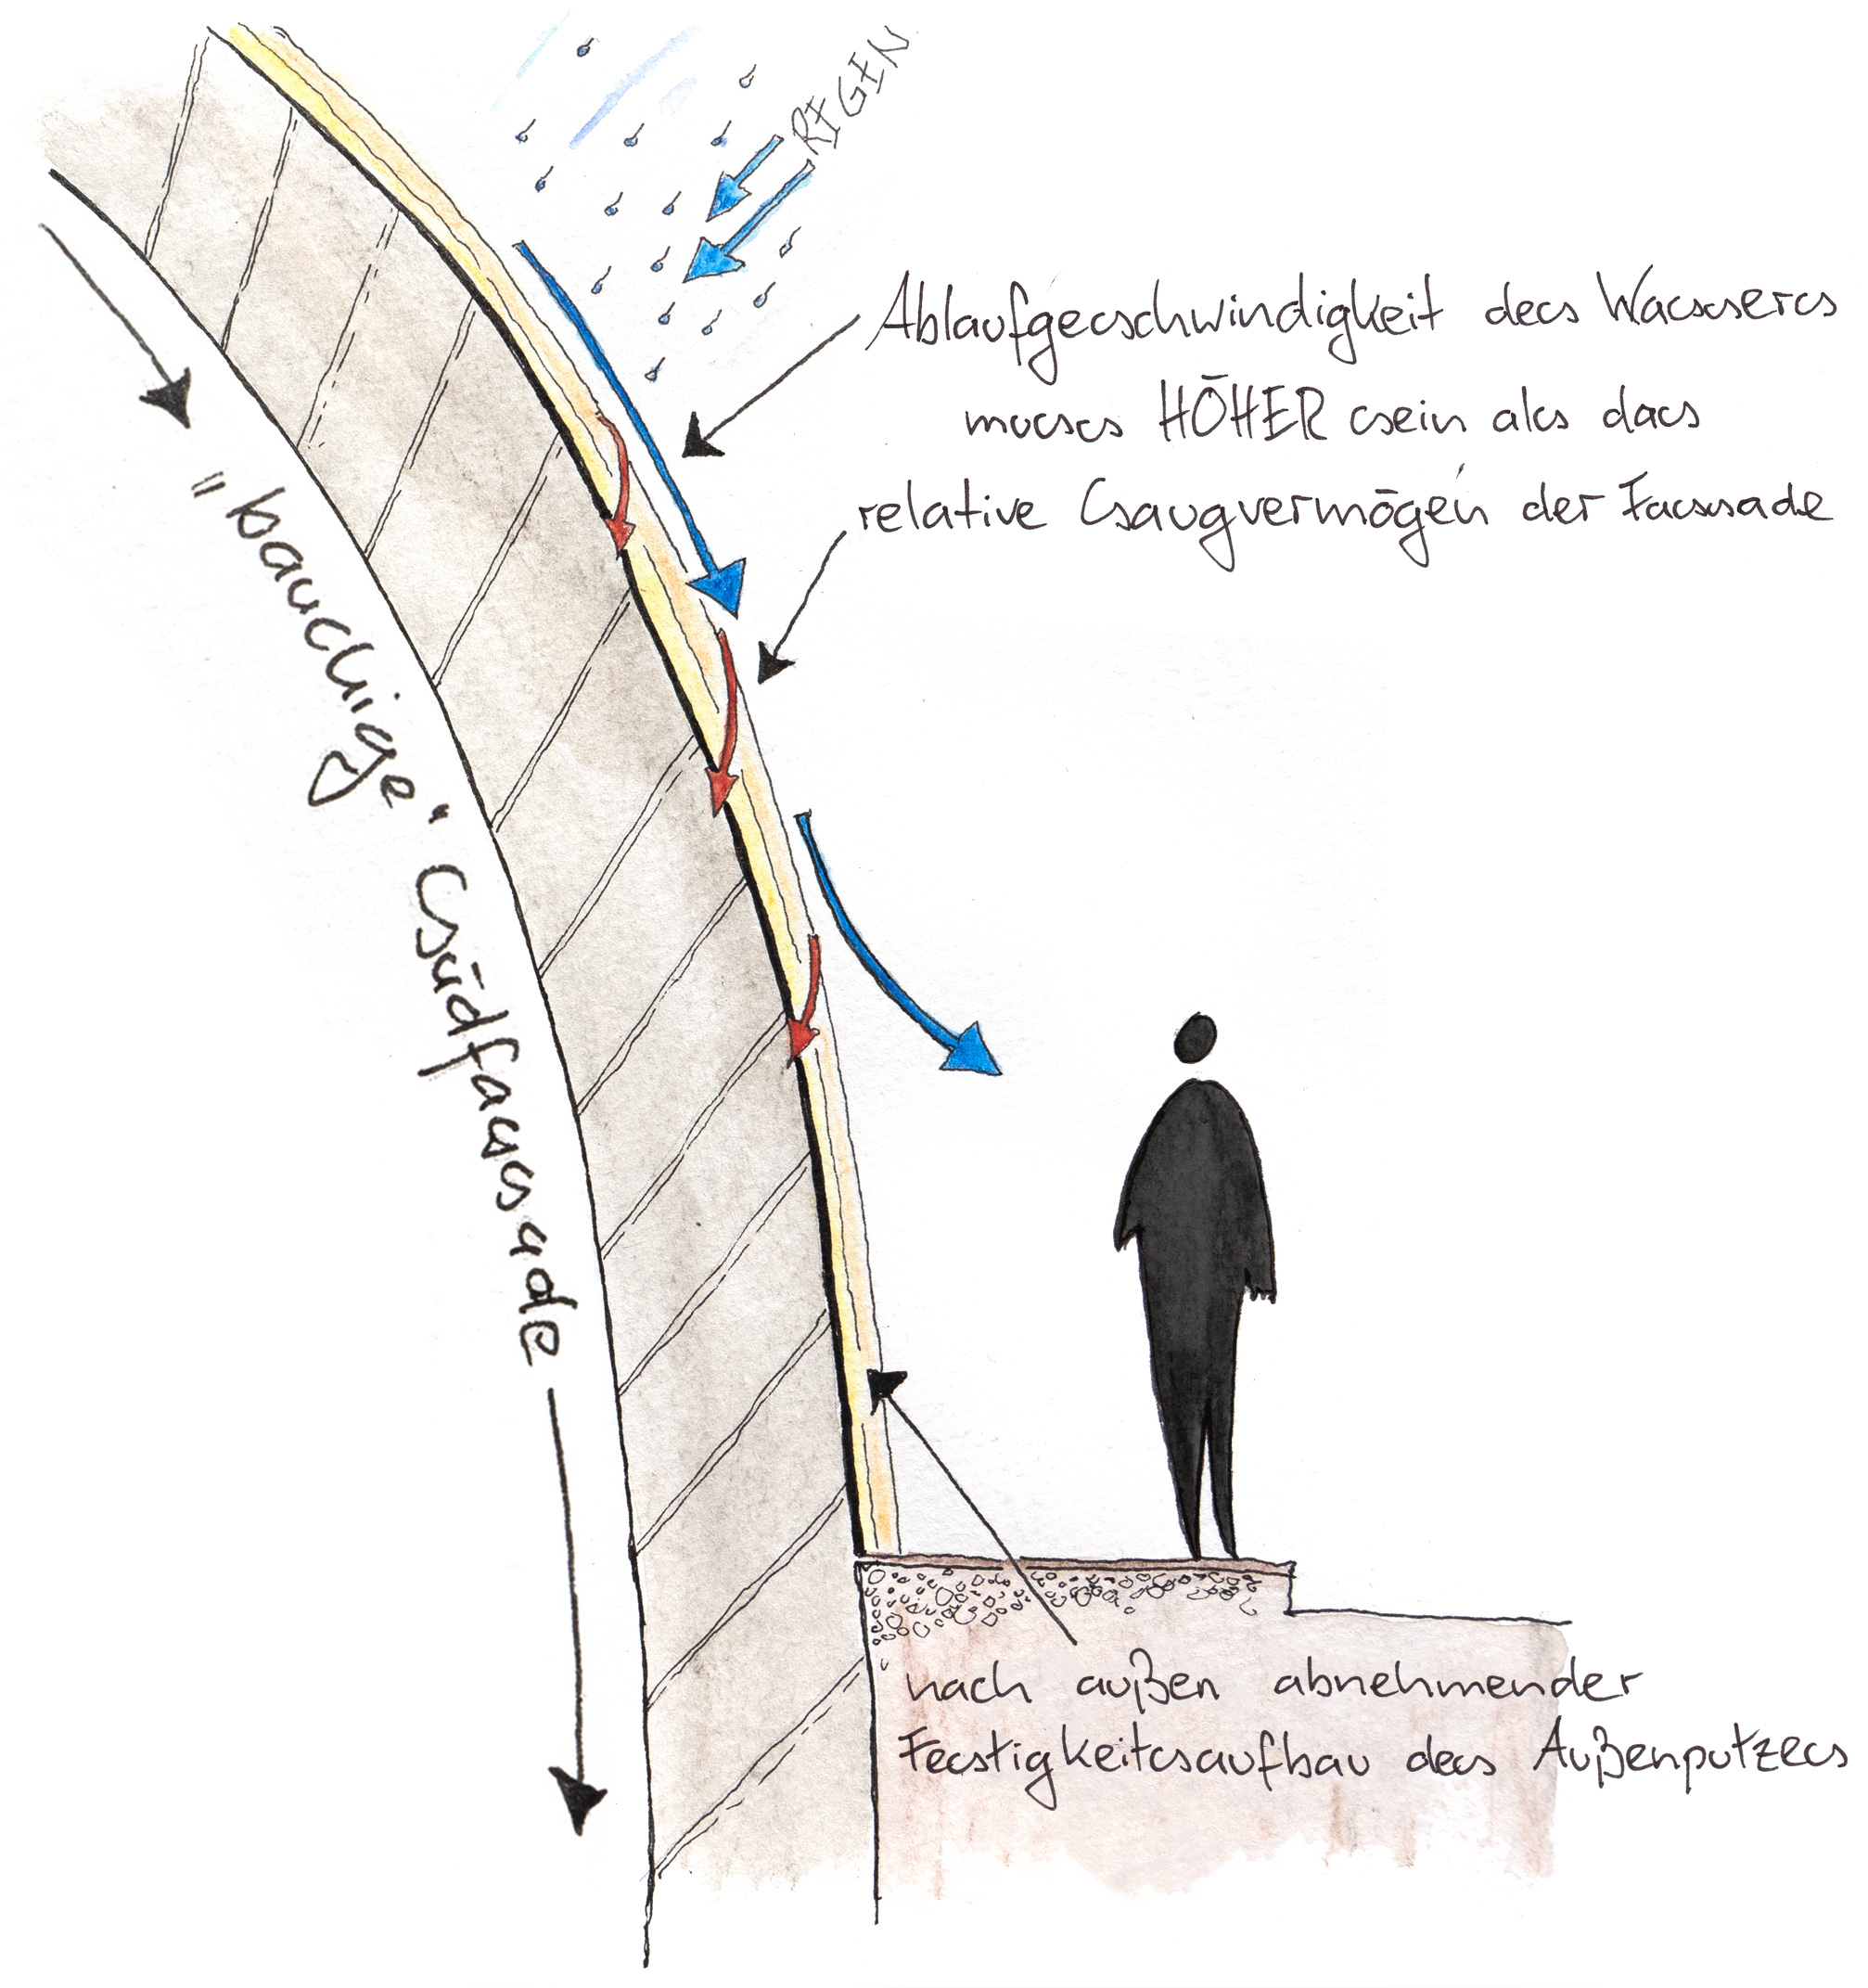 REGEN
Ablaufgeschwindigkeit des Wassers
muss HÖHER sein als das
relative Saugvermögen der Fassade
„bauchige“ Südfassade
nach außen abnehmender
Festigkeitsaufbau des Außenputzes